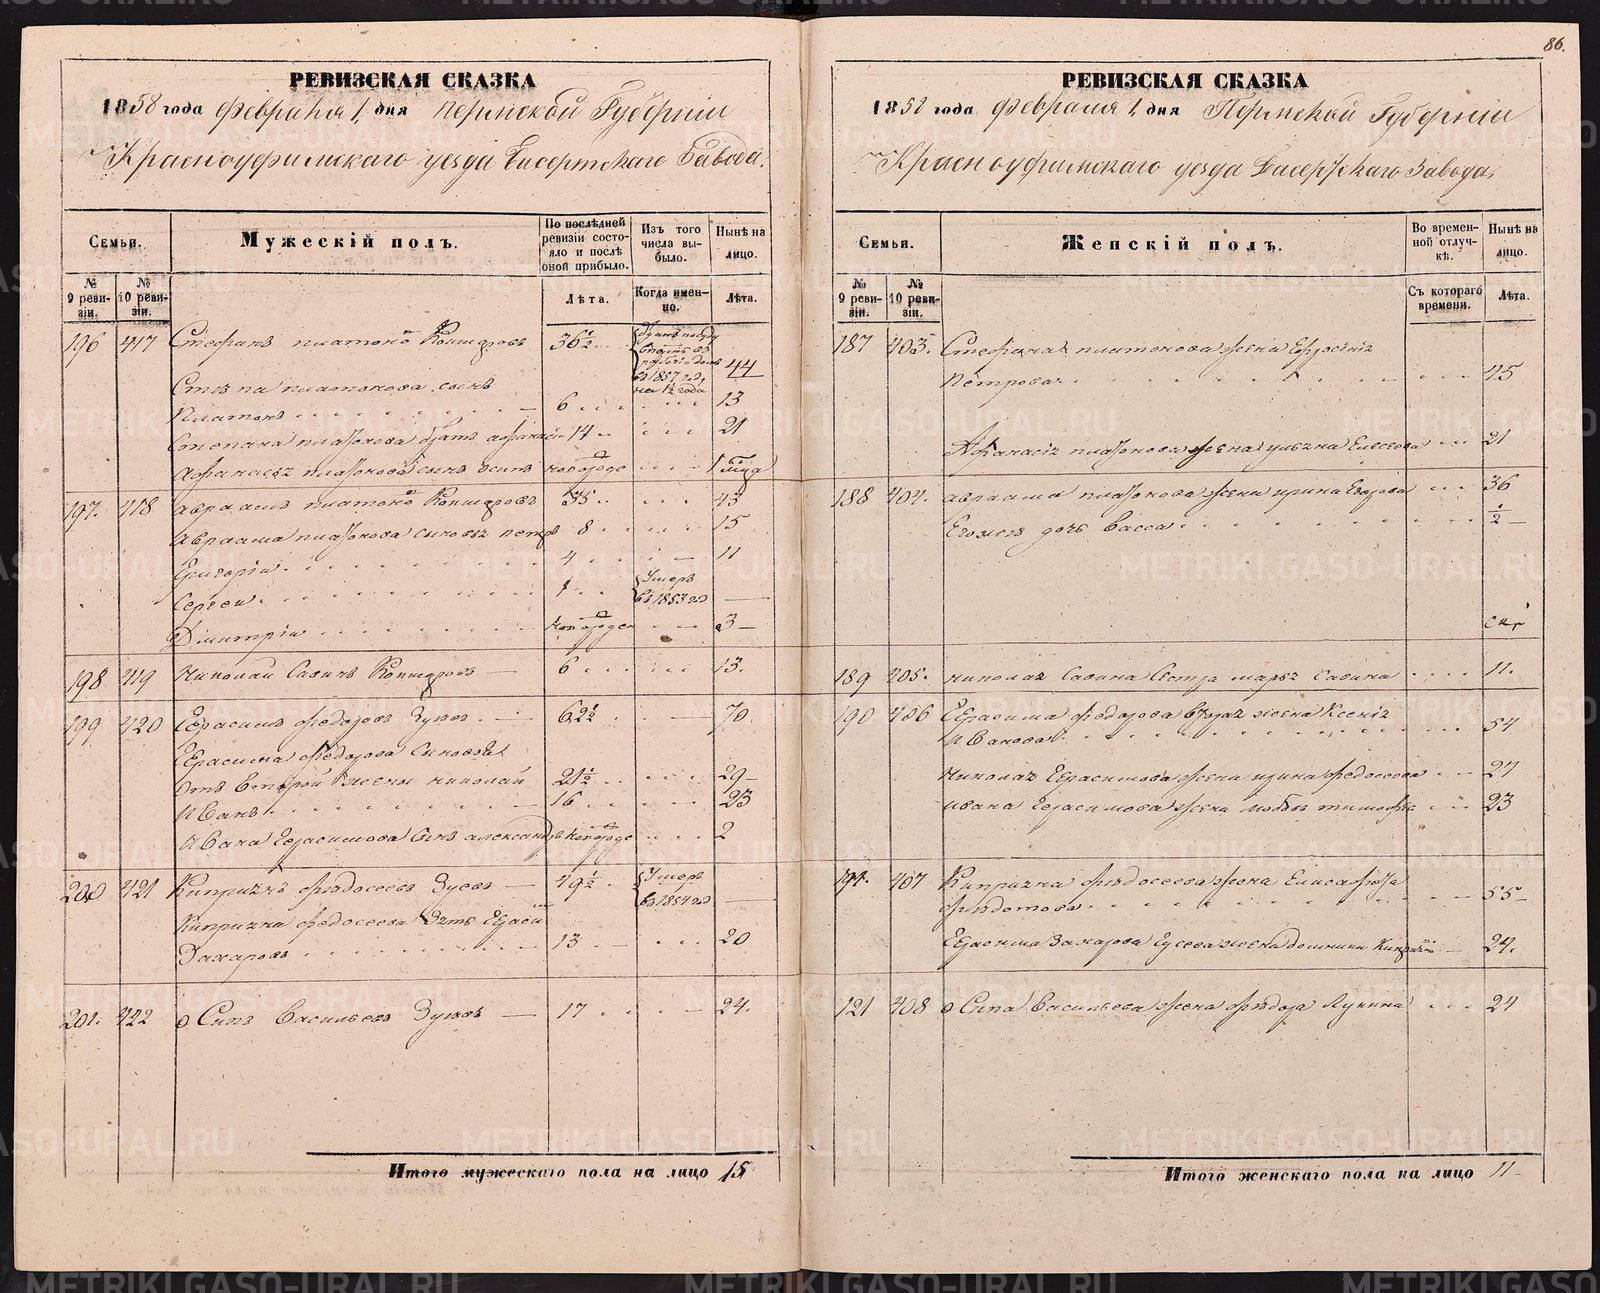 86.
РЕВИЗСКАЯ СКАЗКА
1858 года Февраля 1, дня Пермской Губернии
Красноуфимскаго уезда Бисертскаго Завода.
Семьи.
Мужескій полъ.
По послѣдней ревизіи состояло и послѣ оной прибыло.
Изъ того числа выбыло.
Нынѣ на лицо.
№ 9 ревизіи.
№ 10 ревизіи.
Лѣта.
Когда именно.
Лѣта.
196 417 Стефанъ Платоно
36½
въ 1857 год
44
Степана Платонова сынъ
Платонъ 6 13
Степана Платонова братъ Афанасій 14 21
Афанасья Платонова сынъ новорожде 1
197. 418 Авраамъ Платоно 35 43
Авраама Платонова сыновья Петръ 8 15
Григорій 4 11
Сергей 1 Умеръ въ 1853 год
Димитрій новорожде 3
198 419 Николай Савинъ 6 13.
199 420 Герасимъ Федоровъ 62½ 70
Герасима Федорова сыновья
отъ второй жены Николай 21½ 29
Иванъ 16 23
Ивана Герасимова сынъ Александръ новорожде 2
200 421 Кипріянъ Федосеевъ 49½ Умеръ въ 1854 год
Кипріяна Федосеева зять Гераси
Захаровъ 13 20
201. 422 Осипъ Васильевъ 17 24.
Итого мужескаго пола на лицо 15
РЕВИЗСКАЯ СКАЗКА
1858 года Февраля 1, дня Пермской Губернии
Красноуфимскаго уезда Бисертскаго Завода.
Семьи.
Женскій полъ.
Во временной отлучкѣ.
Нынѣ на лицо.
№ 9 ревизіи.
№ 10 ревизіи.
Съ котораго времени.
Лѣта.
187 403. Стефана Платонова жена Ефросинія
Петрова 45
Афанасія Платонова жена Ульяна Елисеева 21
188 404. Авраама Платонова жена Ирина Егорова 36
Его дочь Васса ½
189 405. Николая Савина сестра Марья Савина 11.
190 406 Герасима Федорова вторая жена Ксенія
Иванова 54
Николая Герасимова жена Ирина Федосеева 27
Ивана Герасимова жена Любовь Тимофе 23
407 Кипріяна Федосеева жена Елисавета
Федотова 55
Герасима Захарова жена Домника 24.
121 408 Осипа Васильева жена Федора Лукина 24
Итого женскаго пола на лицо 11
METRIKI.GASO-URAL.RU